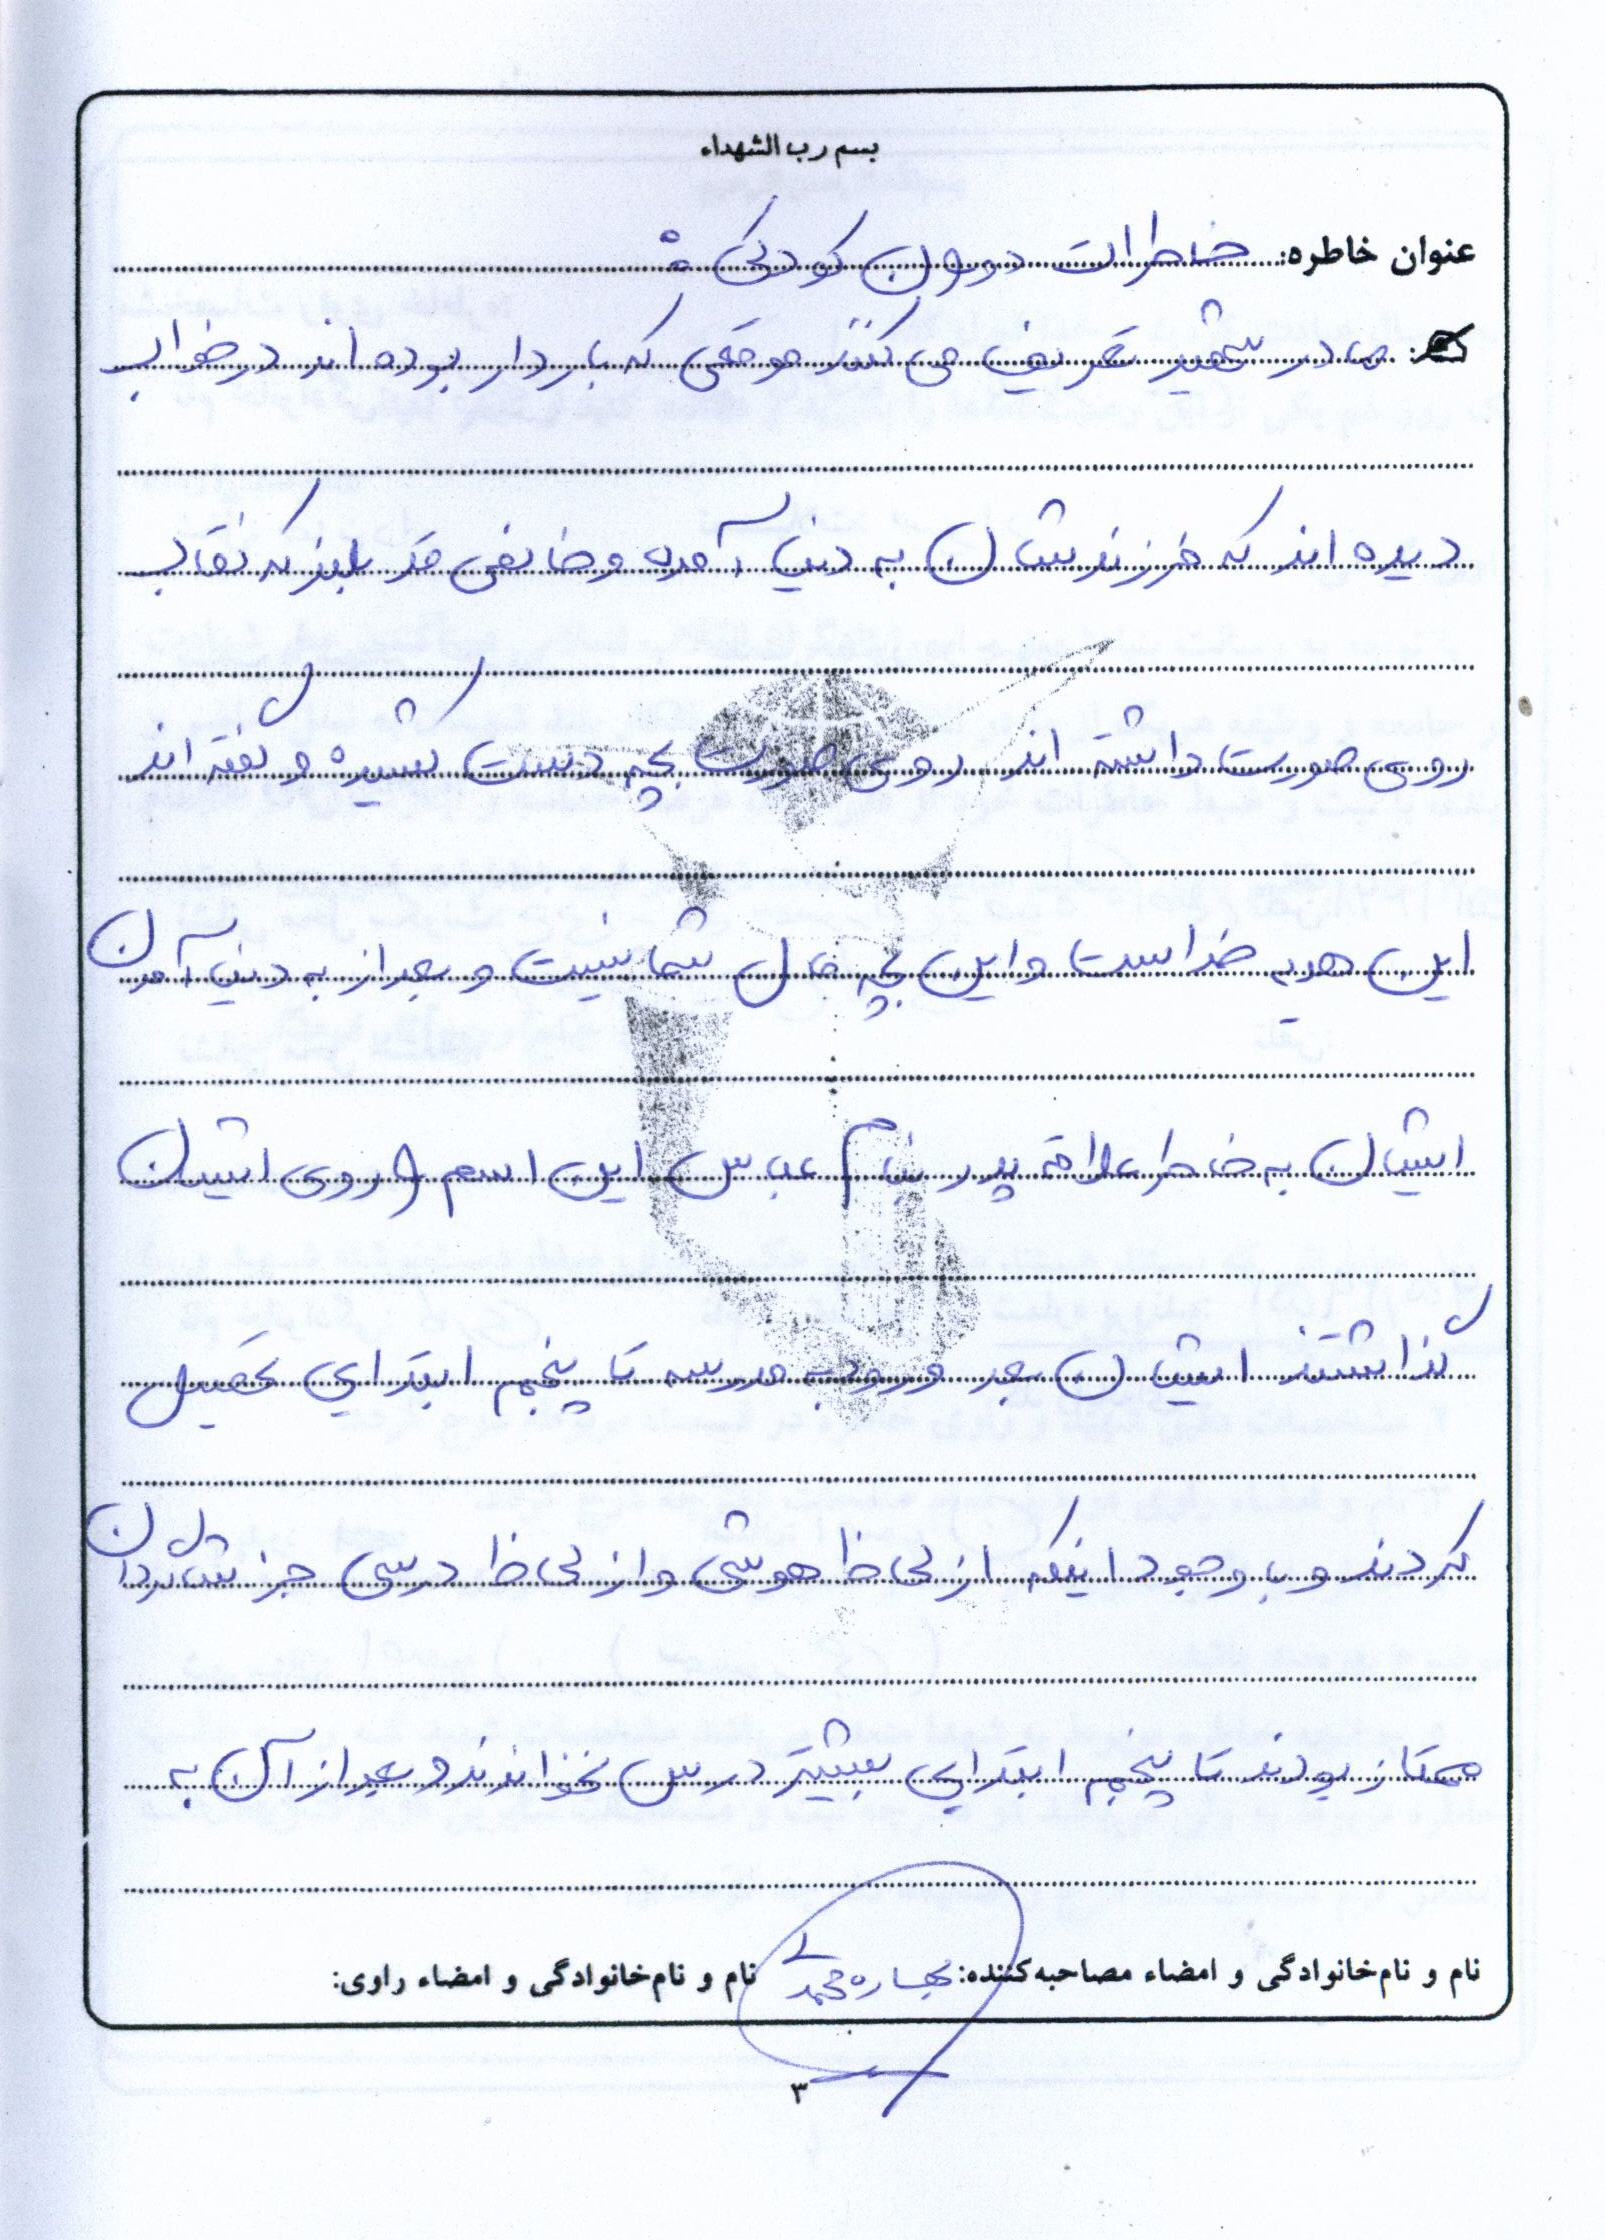 بسم رب الشهداء
عنوان خاطره: خاطرات دوران کودکی :
مادر شهید تعریف می کنند موقعی که باردار بوده اند در خواب
دیده اند که فرزندشان به دنیا آمده و خانمی قد بلند که نقاب
روی صورت داشته اند روی صورت بچه دست کشیده و گفته اند
این هدیه خداست و این بچه مال شما نیست و بعد از به دنیا آمدن
ایشان به خاطر علاقه پدر بنام عباس این اسم را روی ایشان
گذاشتند ایشان بعد ورود به مدرسه تا پنجم ابتدایی تحصیل
کردند و با وجود اینکه از لحاظ هوشی و از لحاظ درسی جز شاگردان
ممتاز بودند تا پنجم ابتدایی بیشتر درس نخواندند و بعد از آن به
نام و نام‌خانوادگی و امضاء مصاحبه‌کننده: نام و نام‌خانوادگی و امضاء راوی:
۳